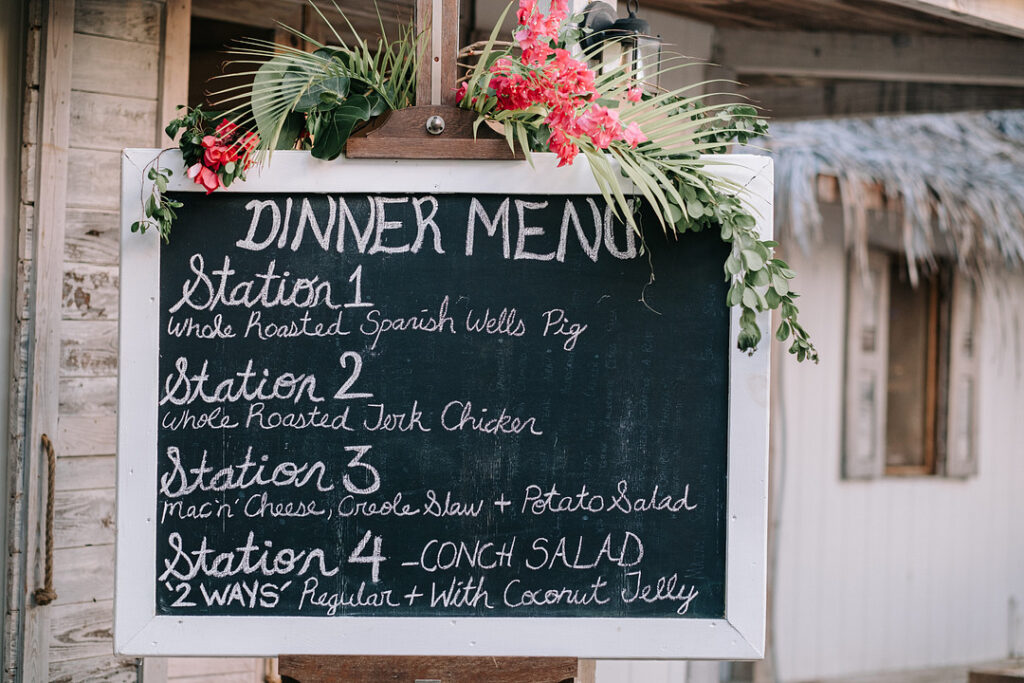 DINNER MENU
Station 1
Whole Roasted Spanish Wells Pig
Station 2
Whole Roasted Jerk Chicken
Station 3
Mac 'n' Cheese, Creole Slaw + Potato Salad
Station 4 - CONCH SALAD
'2 WAYS' Regular + With Coconut Jelly